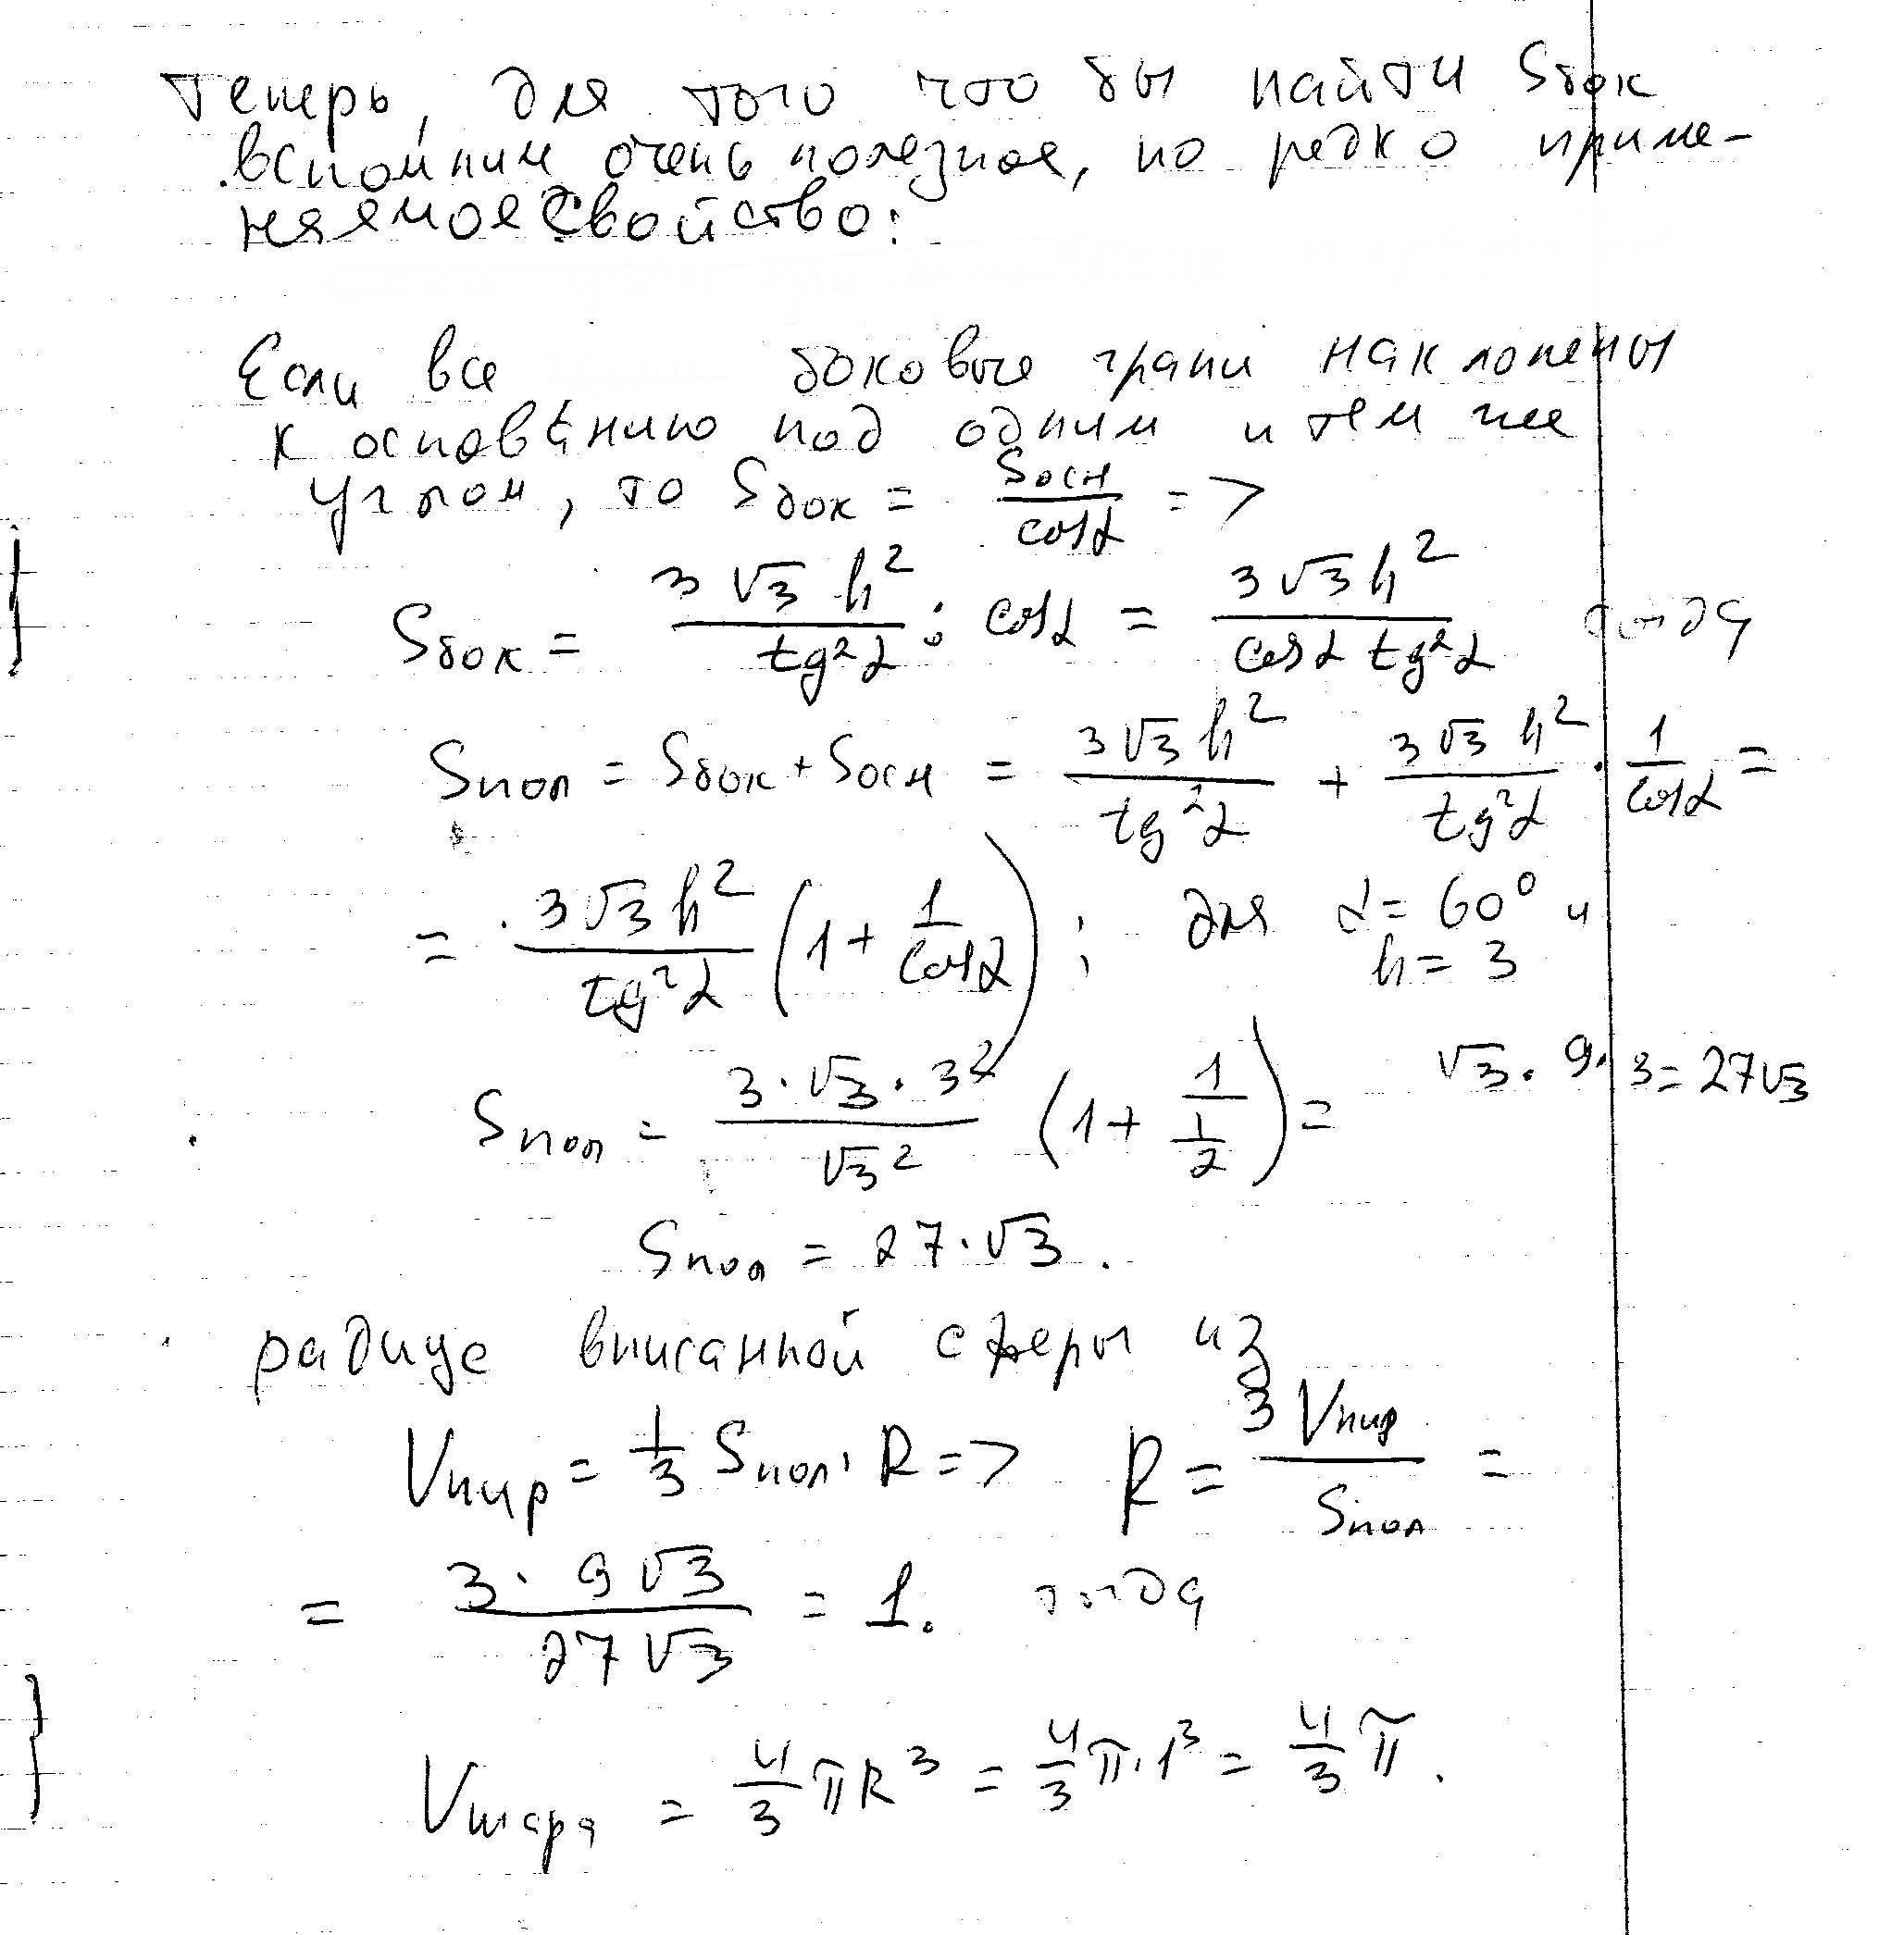 Теперь, для того что бы найти Sбок
вспомним очень полезное, но редко приме-
няемое свойство:
Если все боковые грани наклонены
к основанию под одним и тем же
углом, то Sбок = Sосн/cosα =>
Sбок = 3√3 h²/tg²α : cosα = 3√3 h²/(cosα tg²α) тогда
Sпол = Sбок + Sосн = 3√3 h²/tg²α + 3√3 h²/tg²α · 1/cosα =
= 3√3 h²/tg²α (1 + 1/cosα); для α = 60° и
h = 3
Sпол = 3·√3·3²/√3² (1 + 1/(1/2)) = √3·9·3 = 27√3
Sпол = 27·√3.
радиус вписанной сферы из
Vпир = 1/3 Sпол·R => R = 3Vпир/Sпол =
= 3·9√3/27√3 = 1. тогда
Vшара = 4/3 πR³ = 4/3 π·1³ = 4/3 π.